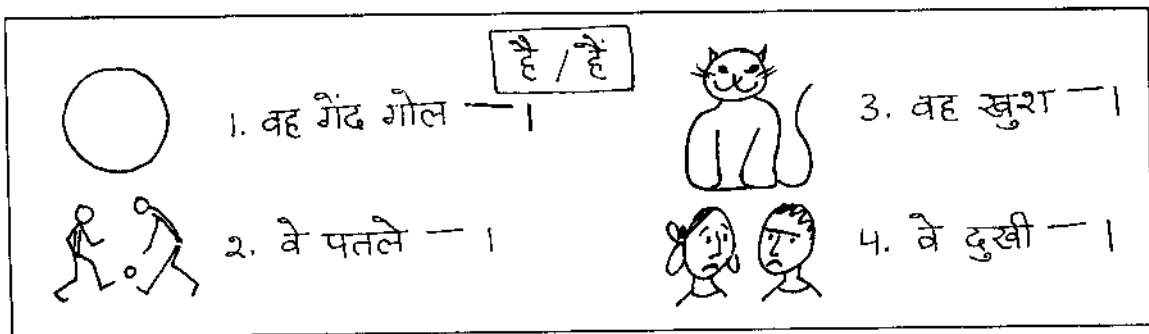 है / हैं
1. वह गेंद गोल — ।
२. वे पतले — ।
3. वह खुश — ।
4. वे दुखी — ।